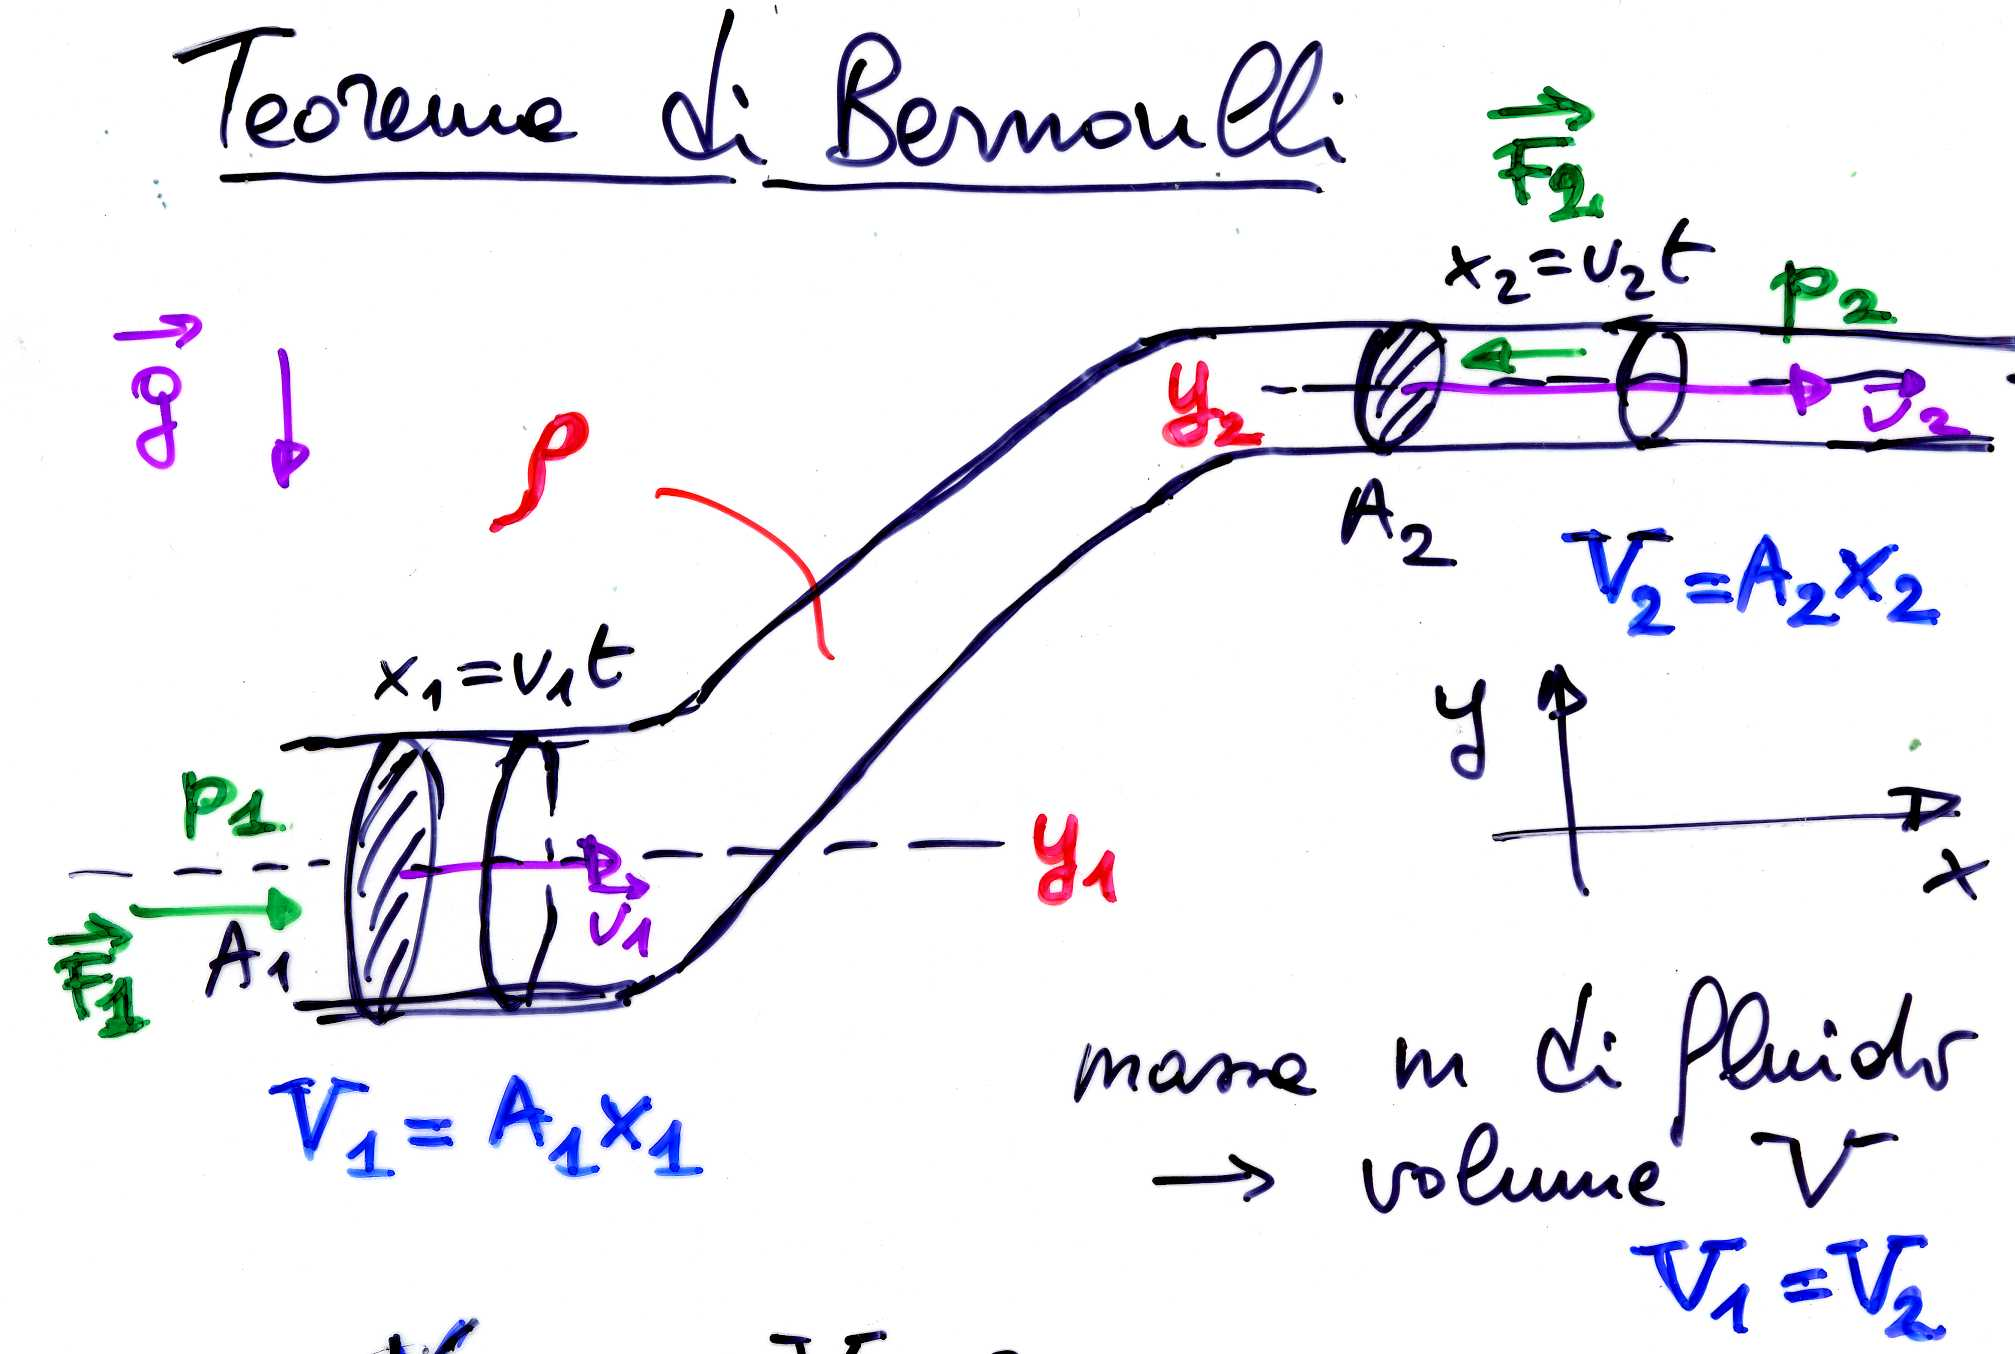 Teorema di Bernoulli
F⃗2
x2=v2t
p2
g⃗
ρ
y2
v⃗2
A2
V2=A2x2
x1=v1t
y
p1
y1
v⃗1
x
A1
F⃗1
massa m di fluido
V1=A1x1
→ volume V
V1=V2